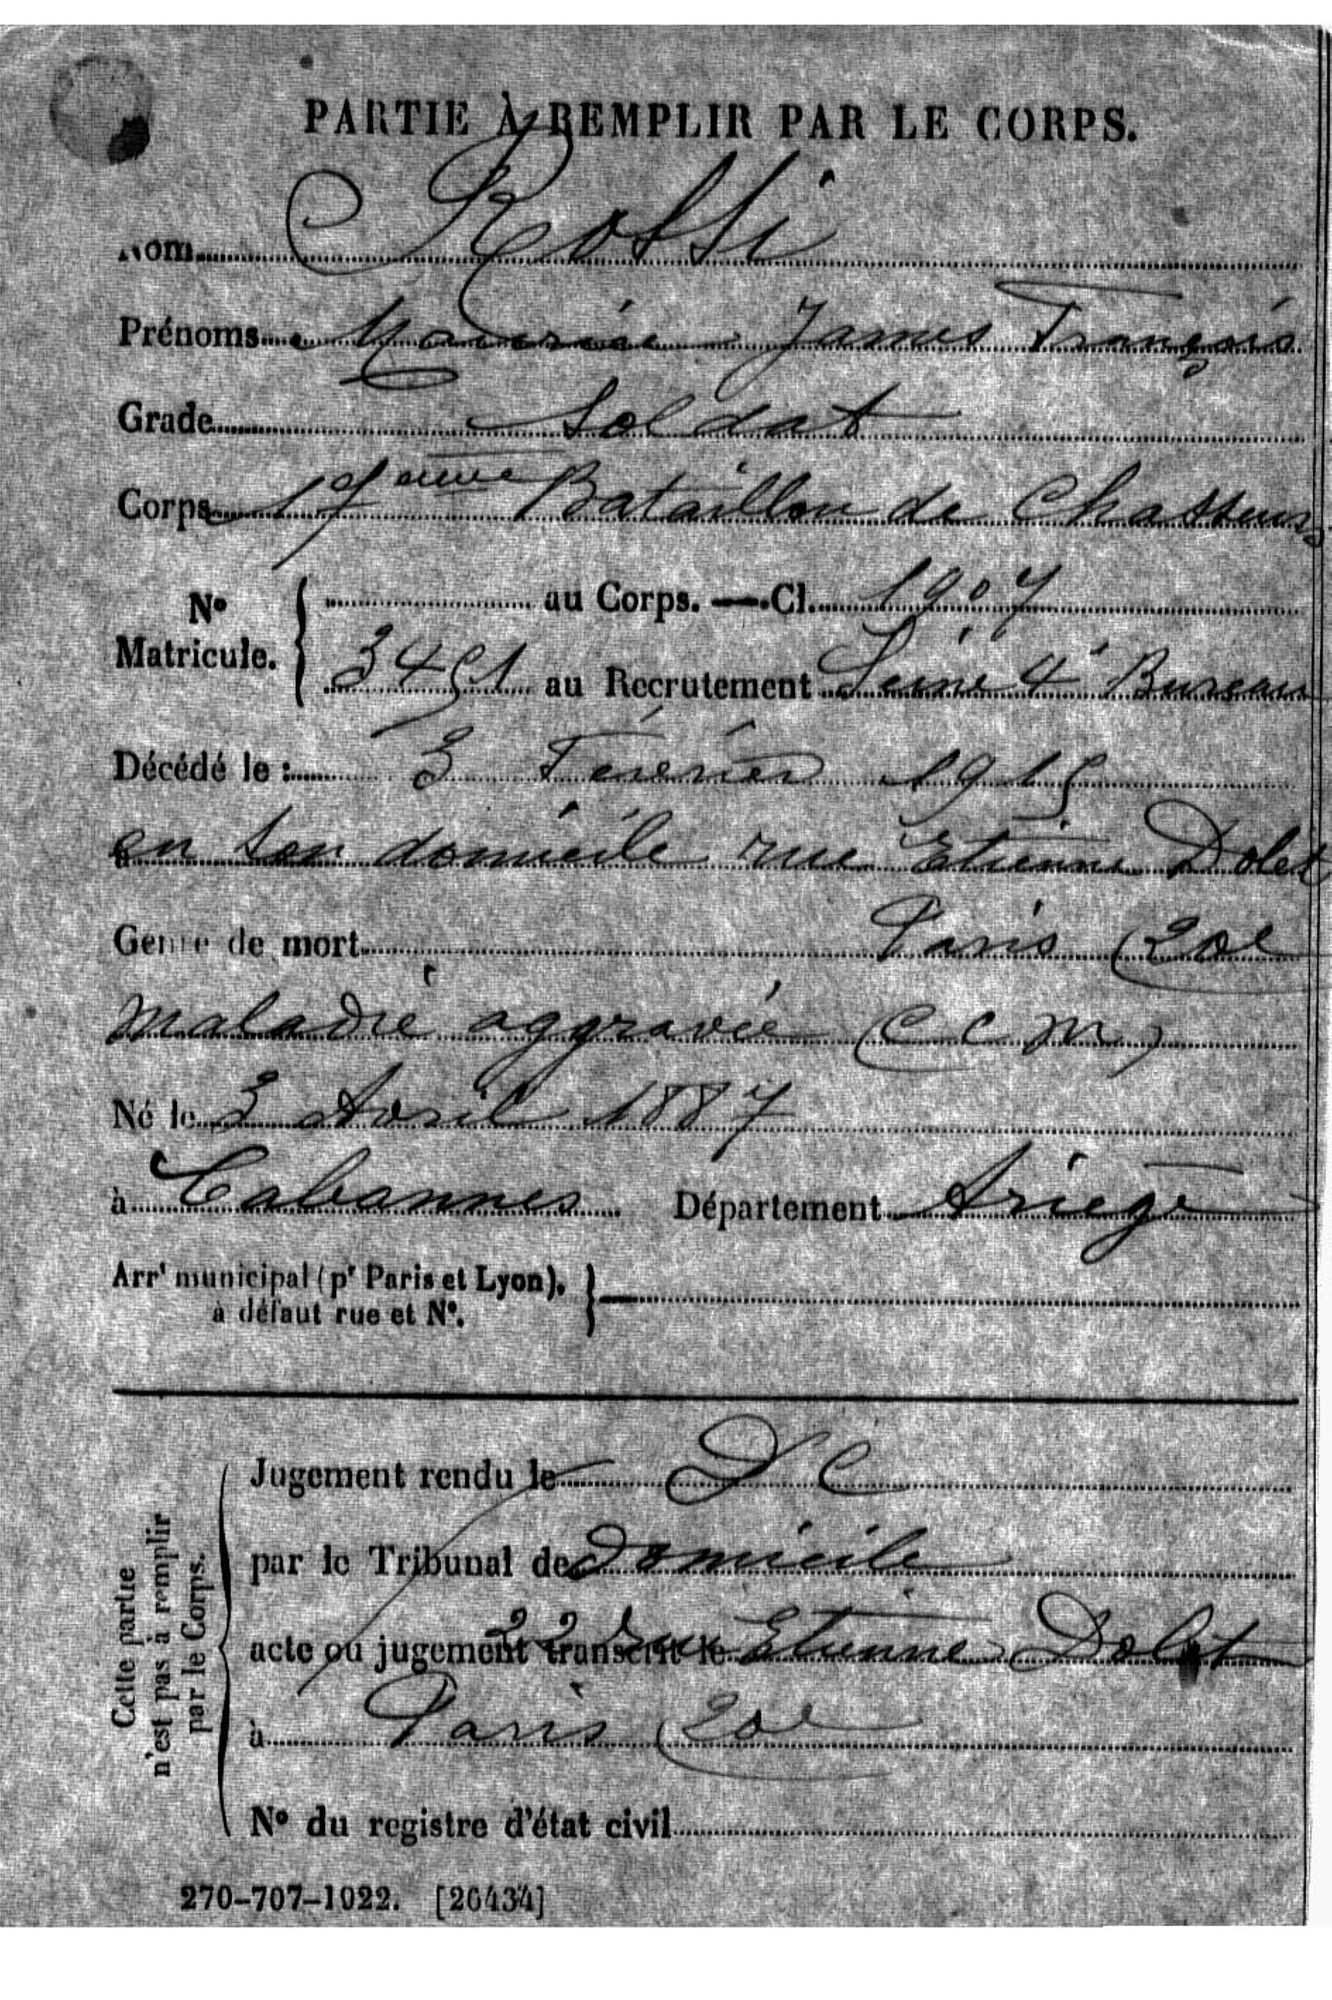 PARTIE À REMPLIR PAR LE CORPS.
Nom Rossi
Prénoms Maurice James François
Grade Soldat
Corps 17eme Bataillon de Chasseurs
No Matricule. { au Corps. — Cl. 1907
3451 au Recrutement Seine 4e Bureau
Décédé le : 3 Février 1915
en son domicile rue Etienne Dolet
Genre de mort Paris (20e
maladie aggravée (C C M)
Né le 3 Avril 1887
à Cabannes Département Ariège
Arrt municipal (pr Paris et Lyon), }
à défaut rue et No.
Cette partie
n'est pas à remplir
par le Corps.
Jugement rendu le D C
par le Tribunal de Domicile
acte ou jugement transcrit le 22 rue Etienne Dolet
à Paris (20e
No du registre d'état civil
270-707-1022. [26434]